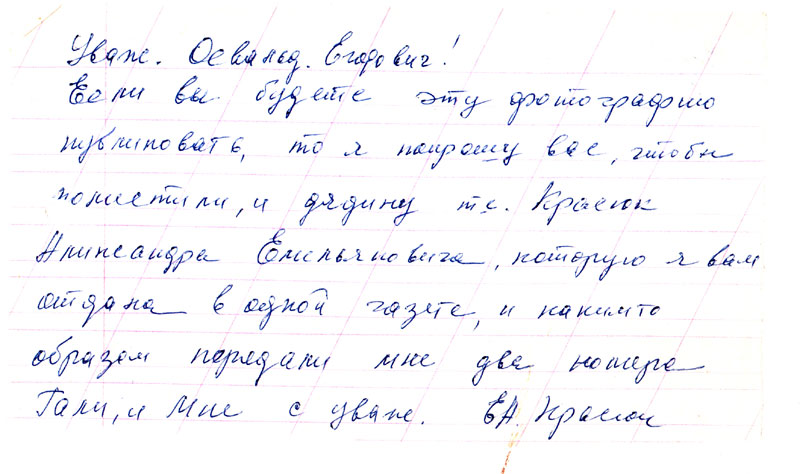 Уваж. Освальд. Егодович!
Если вы будете эту фотографию
публиковать, то я попрошу вас, чтобы
поместили, и дядину те. Красюк
Александра Емельяновича, которую я вам
отдала в одной газете, и какимто
образом передали мне два номера
Гали, и мне с уваж. ЕА. Красюк